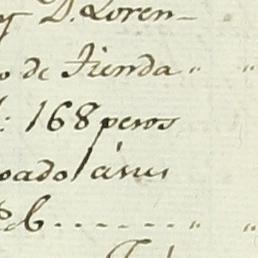 y D. Loren-
o de Tienda " "
: 168 pesos
oado / á sus
8 b. - - - - - - - " "